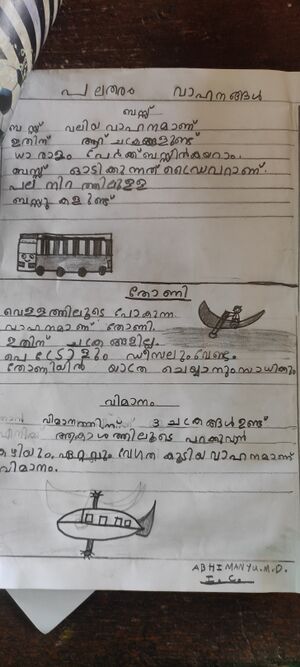 പലതരം വാഹനങ്ങൾ
ബസ്സ്
ബസ്സ് വലിയ വാഹനമാണ്
ഇതിന് ആറ് ചക്രങ്ങളുണ്ട്
ധാരാളം പേർക്ക് ബസ്സിൽകയറാം.
ബസ്സ് ഓടിക്കുന്നത് ഡ്രൈവറാണ്.
പല നിറത്തിലുള്ള
ബസ്സുകളുണ്ട്
തോണി
വെള്ളത്തിലൂടെ പോകുന്ന
വാഹനമാണ് തോണി.
ഇതിന് ചക്രങ്ങളില്ല.
പെട്രോളും ഡീസലുംവേണ്ട.
തോണിയിൽ യാത്ര ചെയ്യാനുംസാധിക്കും
വിമാനം
വിമാനത്തിന് 3 ചക്രങ്ങൾ ഉണ്ട്
ആകാശത്തിലൂടെ പറക്കുവാൻ
കഴിയും. ഏറ്റവും വേഗത കൂടിയ വാഹനമാണ്
വിമാനം.
ABHIMANYU.M.D.
I. C.